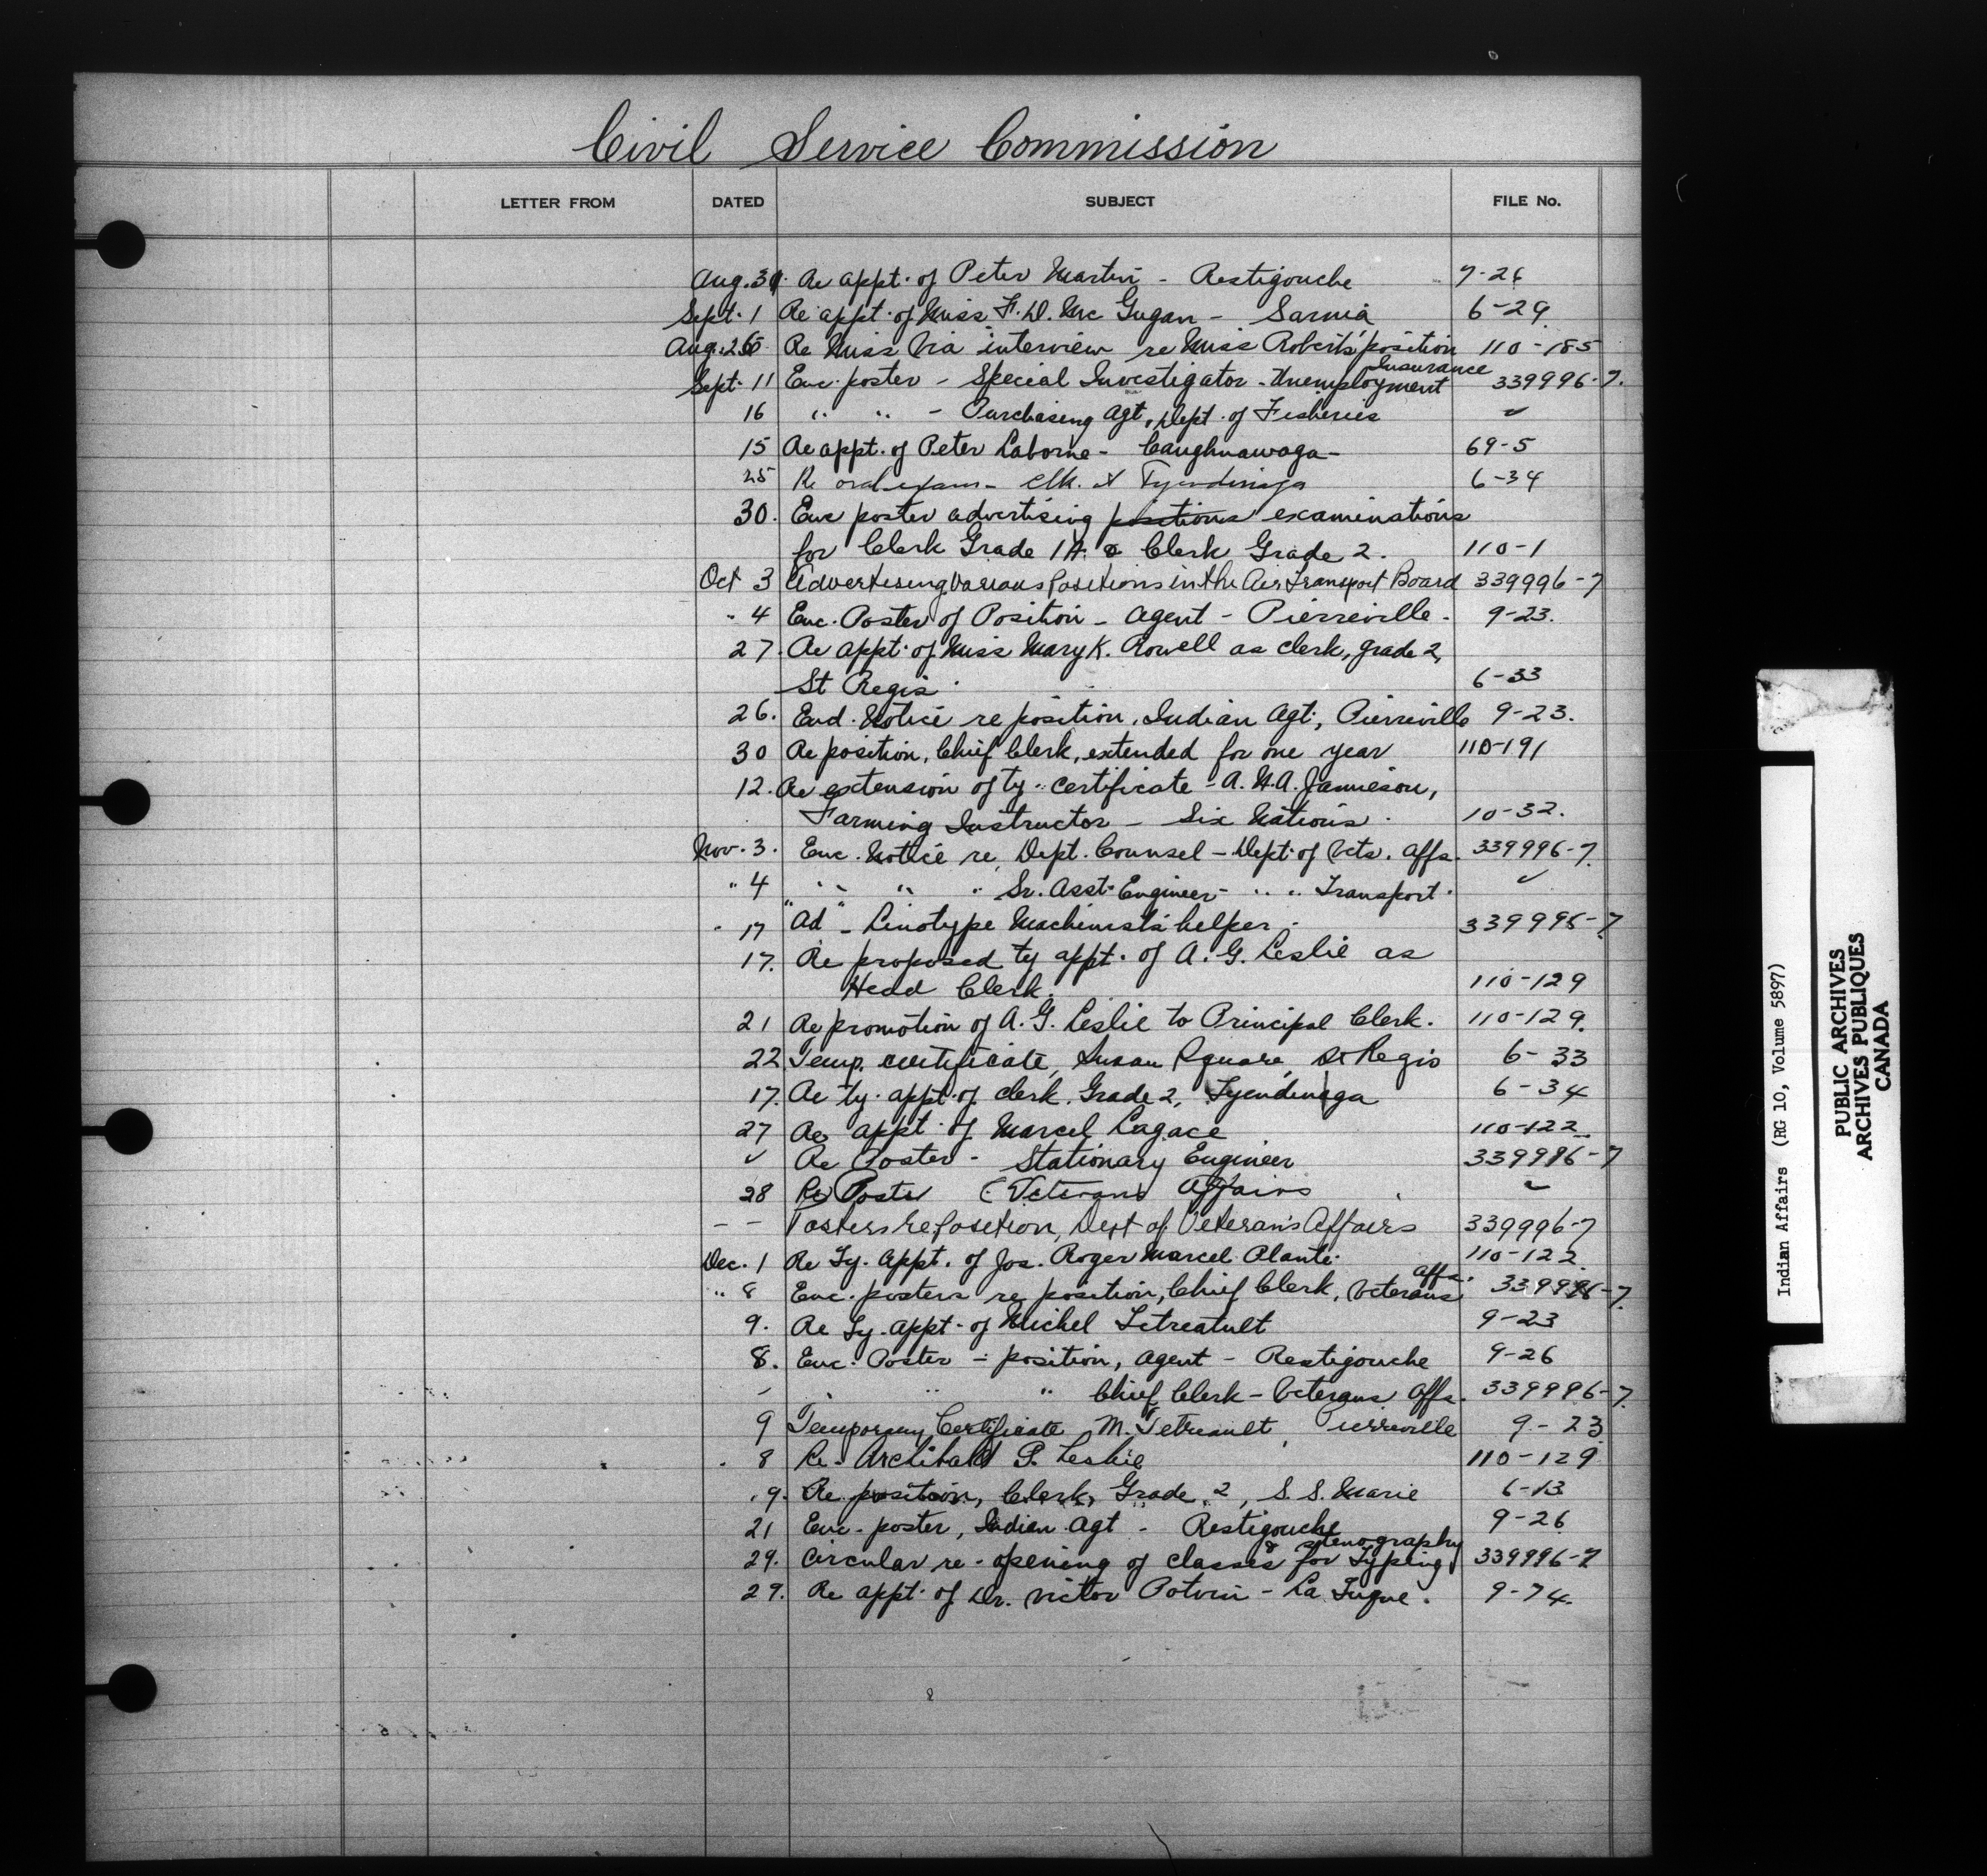 Civil Service Commission
LETTER FROM DATED SUBJECT FILE No.
Aug. 31. Re appt. of Peter Martin - Restigouche 9-26
Sept. 1 Re appt. of Miss F. D. McGugan - Sarnia 6-29
Aug. 26 Re Miss Via interview re Miss Roberts' position 110-185
Insurance
Sept. 11 Enc. poster - Special Investigator - Unemployment 339996-7.
16 " " - Purchasing Agt, Dept. of Fisheries ✓
15 Re appt. of Peter Laborne - Caughnawaga - 69-5
25 Re oral exam - Clk. at Tyendinaga 6-34
30. Enc poster advertising positions examinations
for Clerk Grade 1A & Clerk Grade 2. 110-1
Oct 3 Advertising Various Positions in the Air Transport Board 339996-7
" 4 Enc. Poster of Position - Agent - Pierreville - 9-23.
27. Re appt. of Miss Mary K. Rowell as clerk, grade 2,
St Regis. 6-33
26. End. Notice re position, Indian Agt., Pierreville 9-23.
30 Re position, Chief Clerk, extended for one year 110-191
12. Re extension of ty. certificate - A. N. A. Jamieson,
Farming Instructor - Six Nations. 10-32.
Nov. 3. Enc. Notice re Dept. Counsel - Dept. of Vets. Affs. 339996-7.
" 4 " " " Sr. Asst. Engineer - " " Transport. ✓
" 17 "Ad" - Linotype Machinist's helper - 339996-7
17. Re proposed ty appt. of A. G. Leslie as
Head Clerk. 110-129
21 Re promotion of A. G. Leslie to Principal Clerk. 110-129.
22 Temp. certificate, Susan Square, St Regis 6-33
17. Re ty. appt. of clerk Grade 2, Tyendinaga 6-34
27 Re appt. of Marcel Lagace 110-122
✓ Re Poster - Stationary Engineer 339996-7
28 Re Poster (Veterans Affairs ✓
- - Posters re Position, Dept of Veteran's Affairs 339996-7
Dec. 1 Re Ty. Appt. of Jos. Roger Marcel Plante. 110-122
Affs.
" 8 Enc. posters re position, Chief Clerk, Veterans 339996-7.
9. Re Ty. appt. of Michel Letreatult 9-23
8. Enc. Poster - position, agent - Restigouche 9-26
" " " Chief Clerk - Veterans Affs. 339996-7.
9 Temporary Certificate M. Tetreault, Pierreville 9-23
8 Re. Archibald P. Leslie 110-129
9. Re position, Clerk, Grade 2, S. S. Marie 6-13
21 Enc. poster, Indian Agt - Restigouche 9-26
& stenography
29. Circular re-opening of classes for Typing 339996-7
29. Re appt. of Dr. Victor Potvin - La Tuque. 9-74.
Indian Affairs (RG 10, Volume 5897)
PUBLIC ARCHIVES
ARCHIVES PUBLIQUES
CANADA